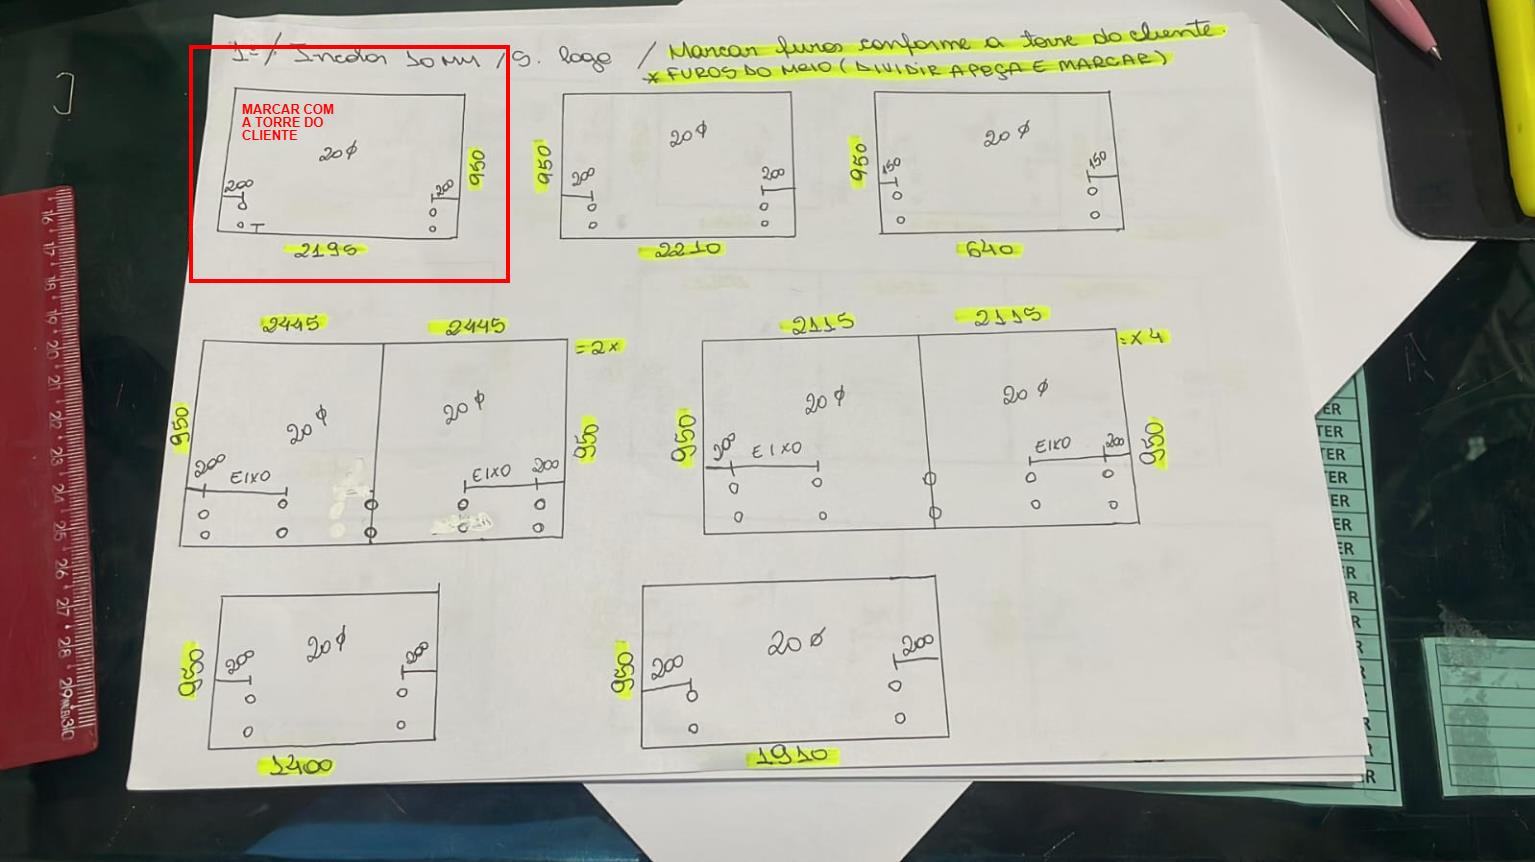 1=/ Incolor 10 MM / S. logo / Marcar furos conforme a torre do cliente.
* FUROS DO MEIO (DIVIDIR A PEÇA E MARCAR)
MARCAR COM
A TORRE DO
CLIENTE
20 ϕ
200
200
950
2195
950
20 ϕ
200
200
2210
950
20 ϕ
150
150
640
2445
2445
= 2x
950
20 ϕ
20 ϕ
950
200
EIXO
EIXO
200
2115
2115
= x 4
950
20 ϕ
20 ϕ
950
200
EIXO
EIXO
200
950
20 ϕ
200
200
1400
950
20 ϕ
200
200
1910
16 17 18 19 20 21 22 23 24 25 26 27 28 29 30
ER
TER
TER
ER
ER
ER
ER
ER
R
R
R